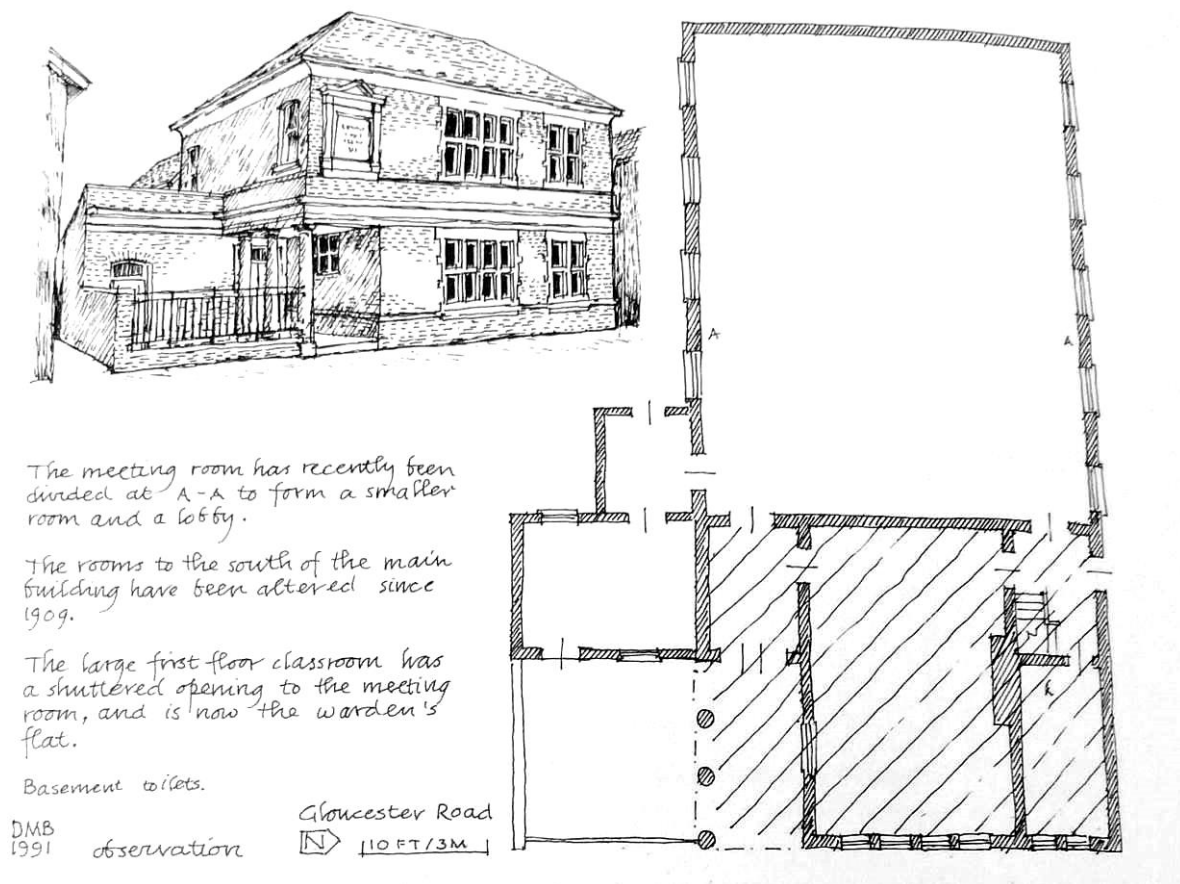 The meeting room has recently been
divided at A-A to form a smaller
room and a lobby.
The rooms to the south of the main
building have been altered since
1909.
The large first floor classroom has
a shuttered opening to the meeting
room, and is now the warden's
flat.
Basement toilets.
DMB
1991
observation
Gloucester Road
N
10 FT/3M
A
A
k